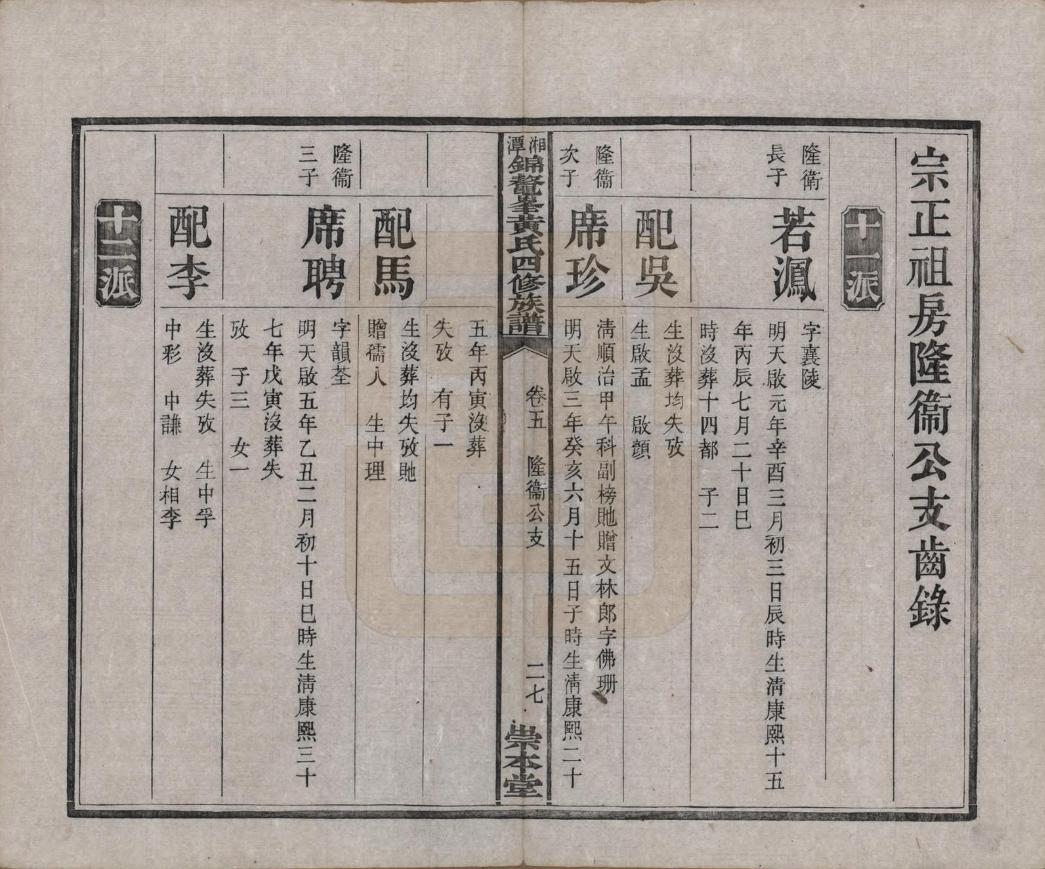 宗正祖房隆衞公支齒錄
十一派
隆衞
長子
若灦
字襄陵
明天啟元年辛酉三月初三日辰時生淸康熙十五
年丙辰七月二十日巳
時沒葬十四都　子二
配吳
生沒葬均失攷
生啟孟　啟顏
隆衞
次子
席珍
淸順治甲午科副榜貤贈文林郎字佛珊
明天啟三年癸亥六月十五日子時生淸康熙二十
湘潭錦鼇峯黃氏四修族譜
卷五　隆衞公支
二七
崇本堂
五年丙寅沒葬
失攷　有子一
配馬
生沒葬均失攷貤
贈孺人　生中理
隆衞
三子
席聘
字韻荃
明天啟五年乙丑二月初十日巳時生淸康熙三十
七年戊寅沒葬失
攷　子三　女一
配李
生沒葬失攷　生中孚
中彩　中謙　女相李
十二派